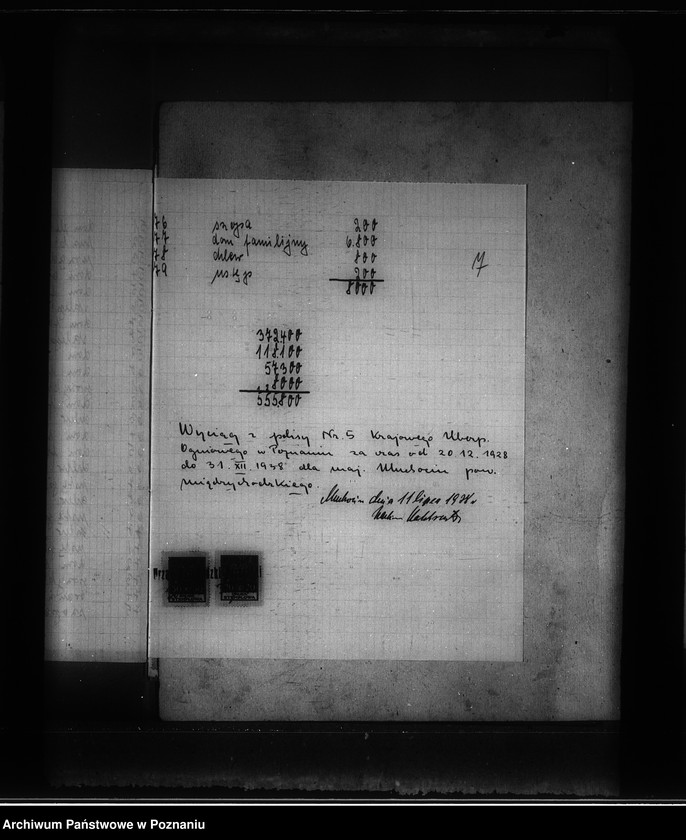 76 szopa 200
77 dom familijny 6.800
78 chlew 800
79 ustęp 200
8000
7
372400
118100
57300
8000
555.800
Wyciąg z polisy Nr. 5 Krajowego Ubezp.
Ogniowego w Poznaniu za czas od 20.12.1928
do 31. XII 1938 dla maj. Muchocin pow.
międzychodzkiego.
Muchocin dnia 11 lipca
Archiwum Państwowe w Poznaniu